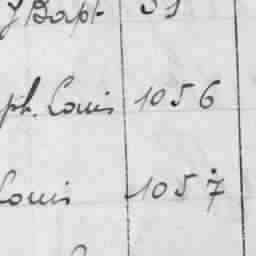 J Bapt
ph. Louis 1056
Louis 1057